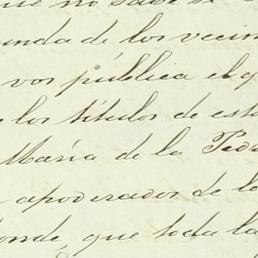 que no sabe si
unda de los vecin
vos pública el q
los títulos de est
María de la Pedr
apoderados de l
onde, que toda la